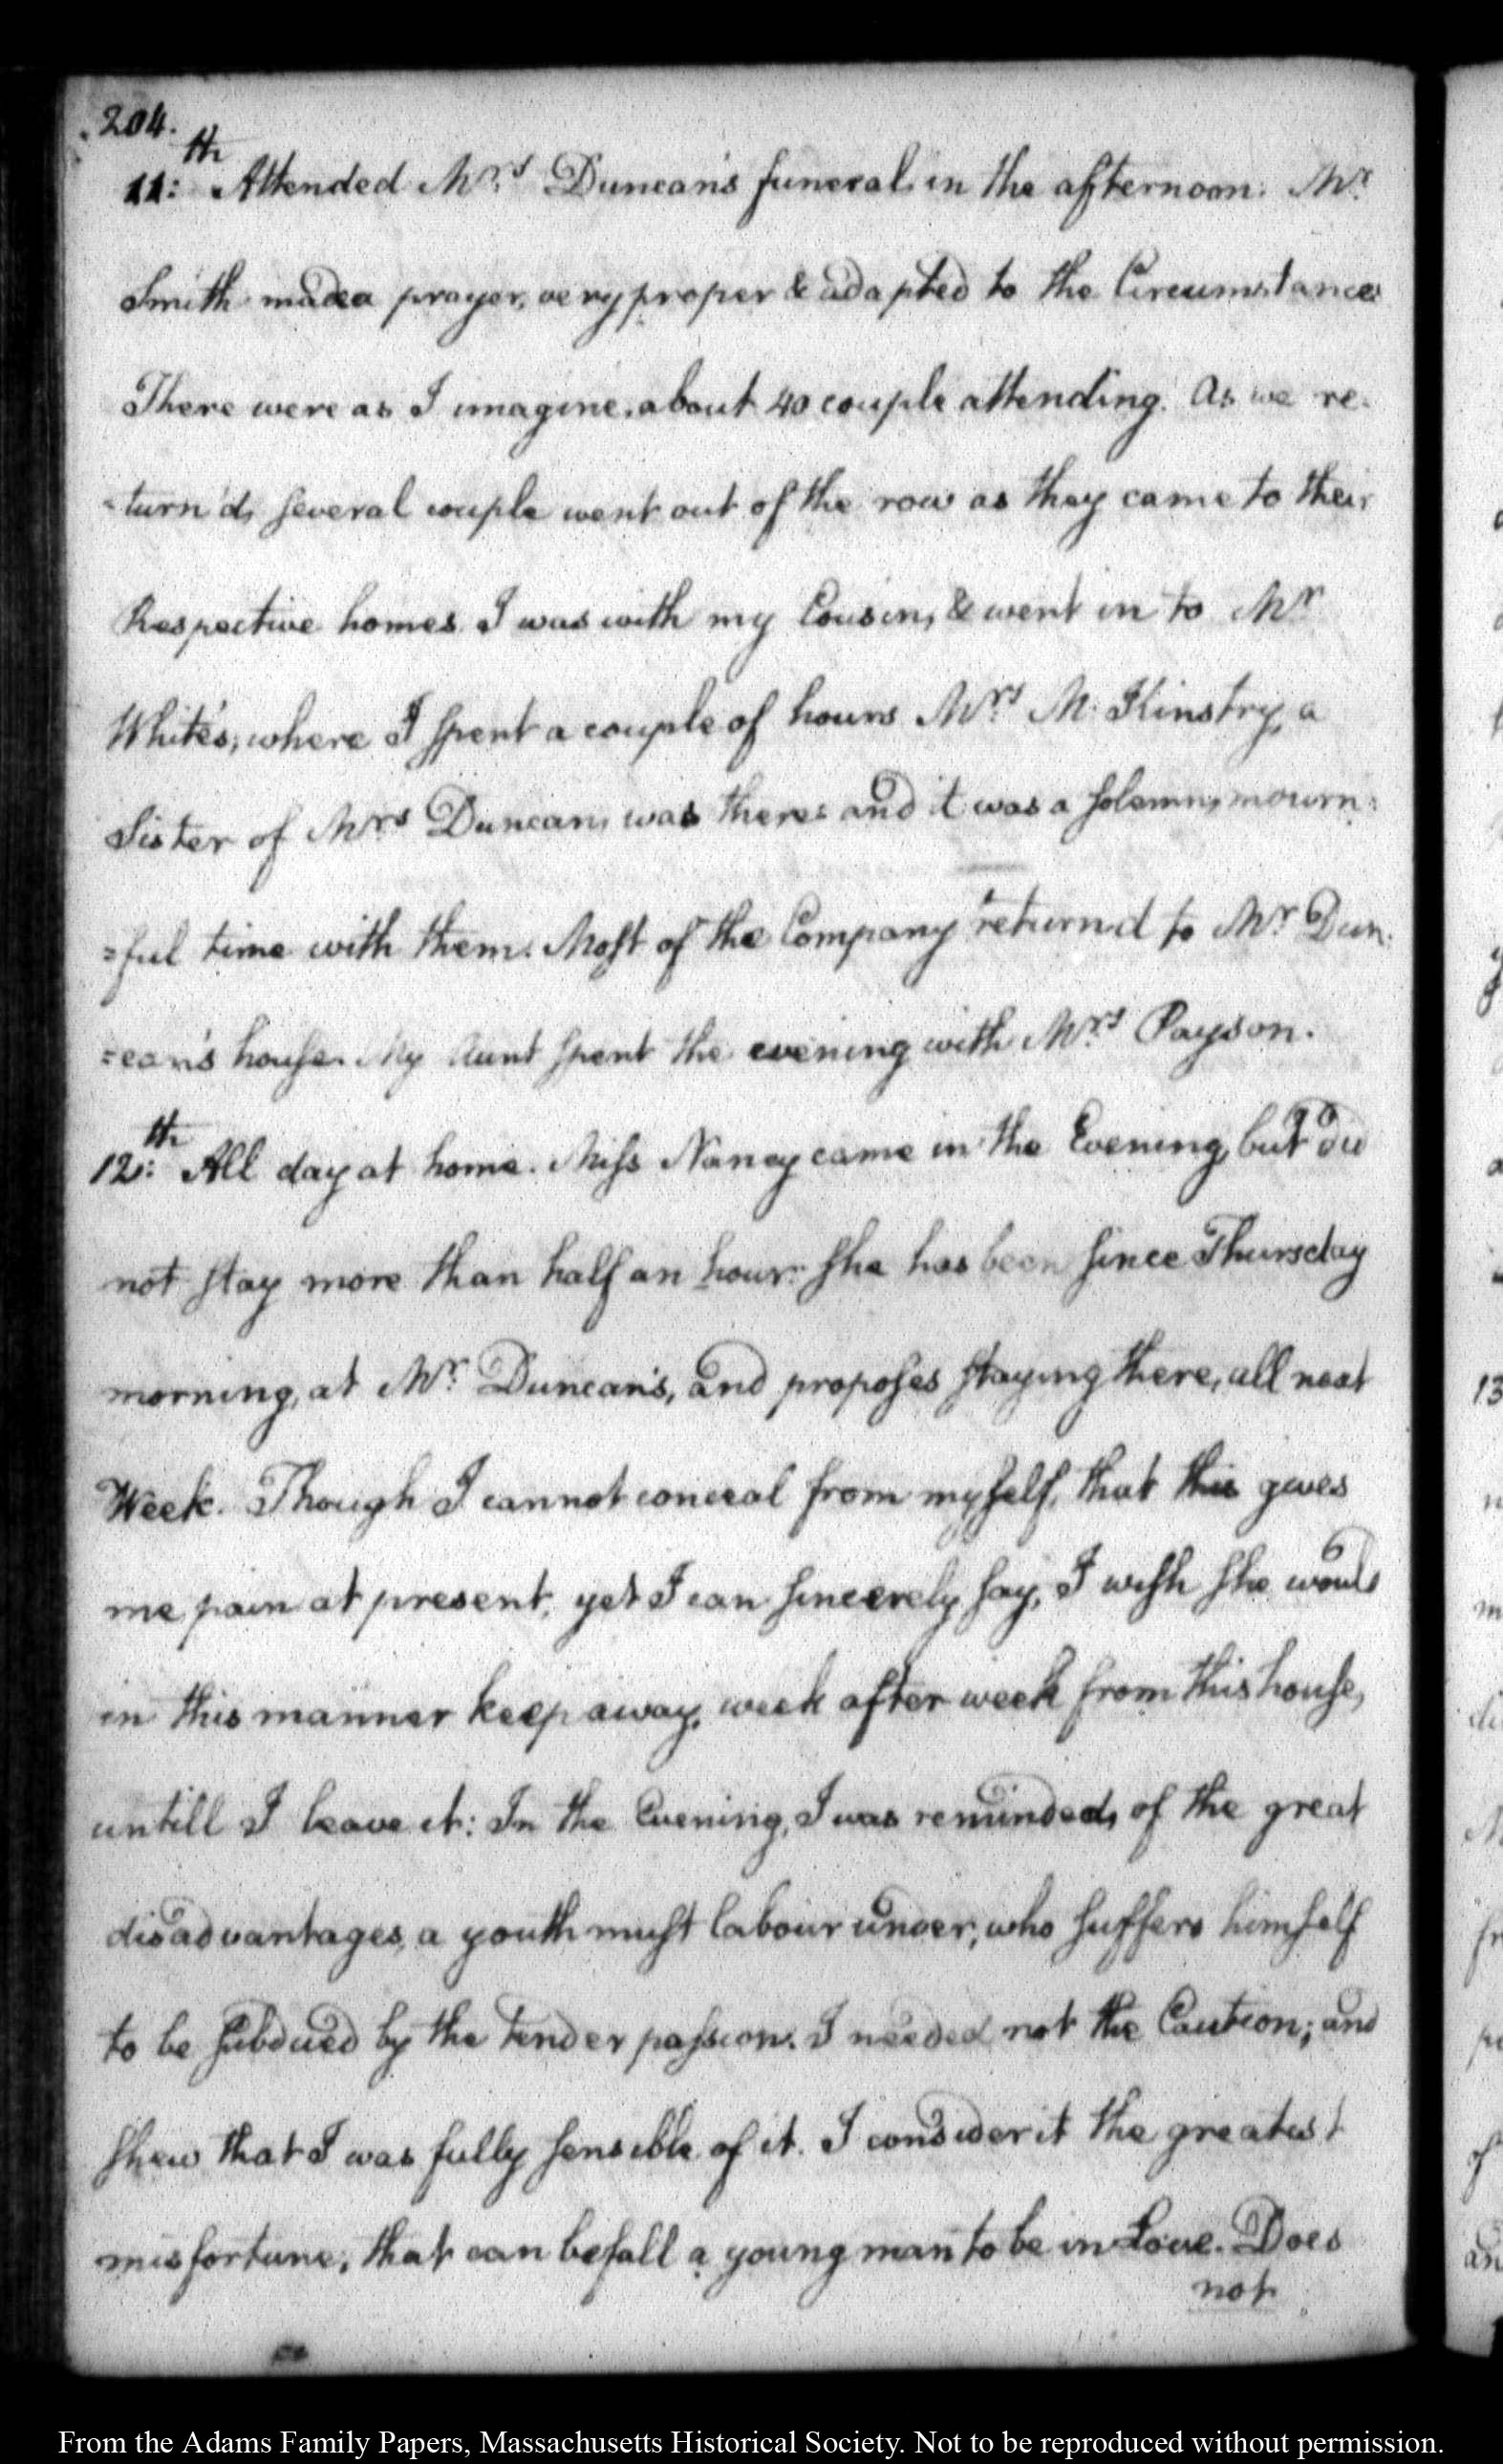 204.
11:th Attended Mrs Duncan's funeral in the afternoon. Mr
Smith made a prayer, very proper & adapted to the Circumstances
There were as I imagine, about 40 couple attending. As we re-
-turn'd, several couple went out of the row as they came to their
Respective homes. I was with my Cousin, & went in to Mr
White's, where I spent a couple of hours Mrs M:Kinstry, a
Sister of Mrs Duncan, was there: and it was a solemn, mourn=
=ful time with them. Most of the Company return'd to Mr Dun-
=can's house. My Aunt spent the evening with Mrs Payson.
12:th All day at home. Miss Nancy came in the Evening, but did
not stay more than half an hour: she has been since Thursday
morning, at Mr Duncan's, and proposes staying there, all next
Week. Though I cannot conceal from myself, that this gives
me pain at present, yet I can sincerely say, I wish she would
in this manner keep away, week after week from this house,
untill I leave it: In the Evening, I was reminded, of the great
disadvantages, a youth must labour under, who suffers himself
to be subdued by the tender passion. I needed not the Caution; and
shew that I was fully sensible of it. I consider it the greatest
misfortune, that can befall a young man to be in Love. Does
not
From the Adams Family Papers, Massachusetts Historical Society. Not to be reproduced without permission.